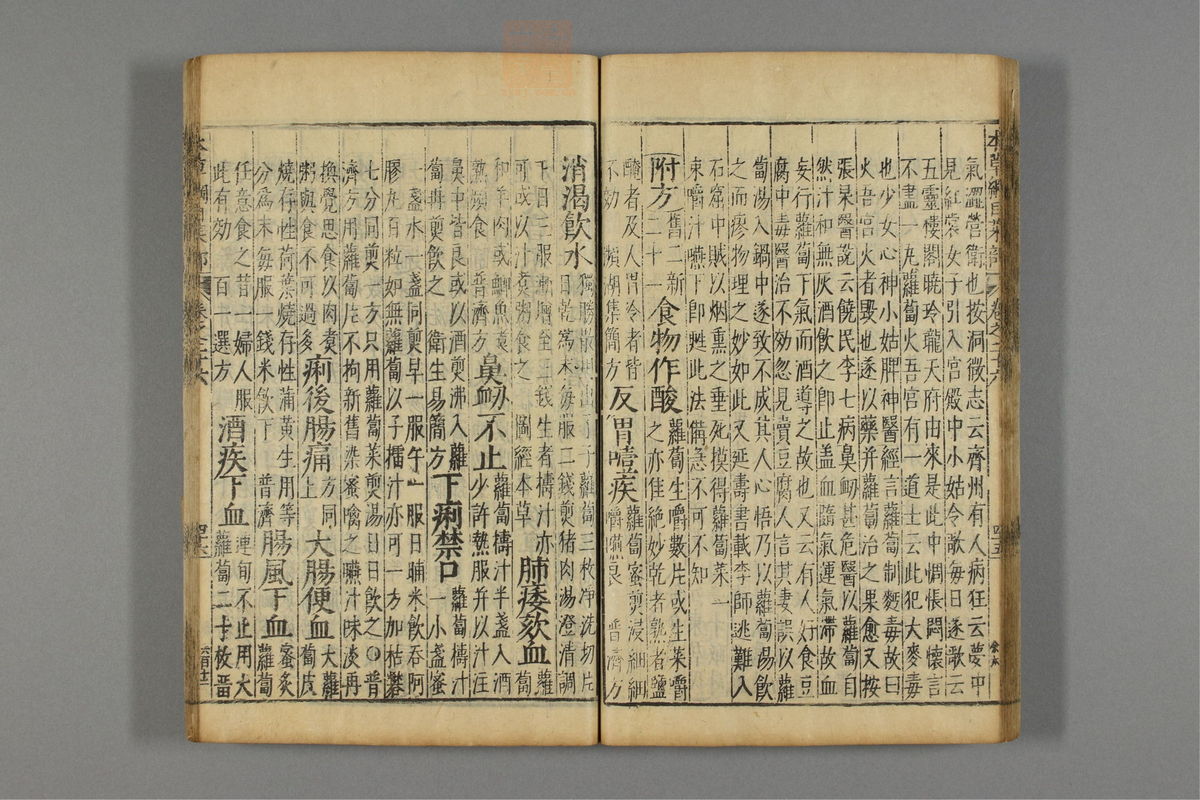 氣澀營衛也按洞微志云齊州有人病狂云夢中
見紅裳女子引入宮殿中小姑令歌每日遂歌云
五靈樓閣曉玲瓏天府由來是此中惆悵悶懷言
不盡一丸蘿蔔火吾宮有一道士云此犯大麥毒
也少女心神小姑脾神醫經言蘿蔔制麪毒故曰
火吾宮火者毀也遂以藥并蘿蔔治之果愈又按
張杲醫說云饒民李七病鼻衄甚危醫以蘿蔔自
然汁和無灰酒飲之卽止盖血隨氣運氣滯故血
妄行蘿蔔下氣而酒導之故也又云有人好食豆
腐中毒醫治不効忽見賣豆腐人言其妻誤以蘿
蔔湯入鍋中遂致不成其人心悟乃以蘿蔔湯飲
之而瘳物理之妙如此又延壽書載李師逃難入
石窟中賊以烟熏之垂死摸得蘿蔔菜一
束嚼汁嚥下卽甦此法備急不可不知
附方
舊二新
二十一
食物作酸
蘿蔔生嚼數片或生菜嚼
之亦佳絶妙乾者熟者鹽
醃者及人胃冷者皆
不効 瀕湖集簡方
反胃噎疾
蘿蔔蜜煎浸細細
嚼嚥良 普濟方
消渴飲水
獨勝散用出了子蘿蔔三枚净洗切片
日乾爲末每服二錢煎猪肉湯澄清調
下日三服漸增至三錢生者擣汁亦
可或以汁煑粥食之 圖經本草
肺痿欬血
蘿
蔔
和羊肉或鯽魚煑
熟頻食 普濟方
鼻衄不止
蘿蔔擣汁半盞入酒
少許熱服并以汁注
鼻中皆良或以酒煎沸入蘿
蔔再煎飲之 衛生易簡方
下痢禁口
蘿蔔擣汁
一小盞蜜
一盞水一盞同煎早一服午一服日晡米飲吞阿
膠丸百粒如無蘿蔔以子擂汁亦可一方加枯礬
七分同煎一方只用蘿蔔菜煎湯日日飲之○普
濟方用蘿蔔片不拘新舊染蜜噙之嚥汁味淡再
換覺思食以肉煑
粥與食不可過多
痢後腸痛
方同
上
大腸便血
大蘿
蔔皮
燒存性荷葉燒存性蒲黃生用等
分爲末每服一錢米飲下 普濟
腸風下血
蜜炙
蘿蔔
任意食之昔一婦人服
此有効 百一選方
酒疾下血
連旬不止用大
蘿蔔二十枚晋